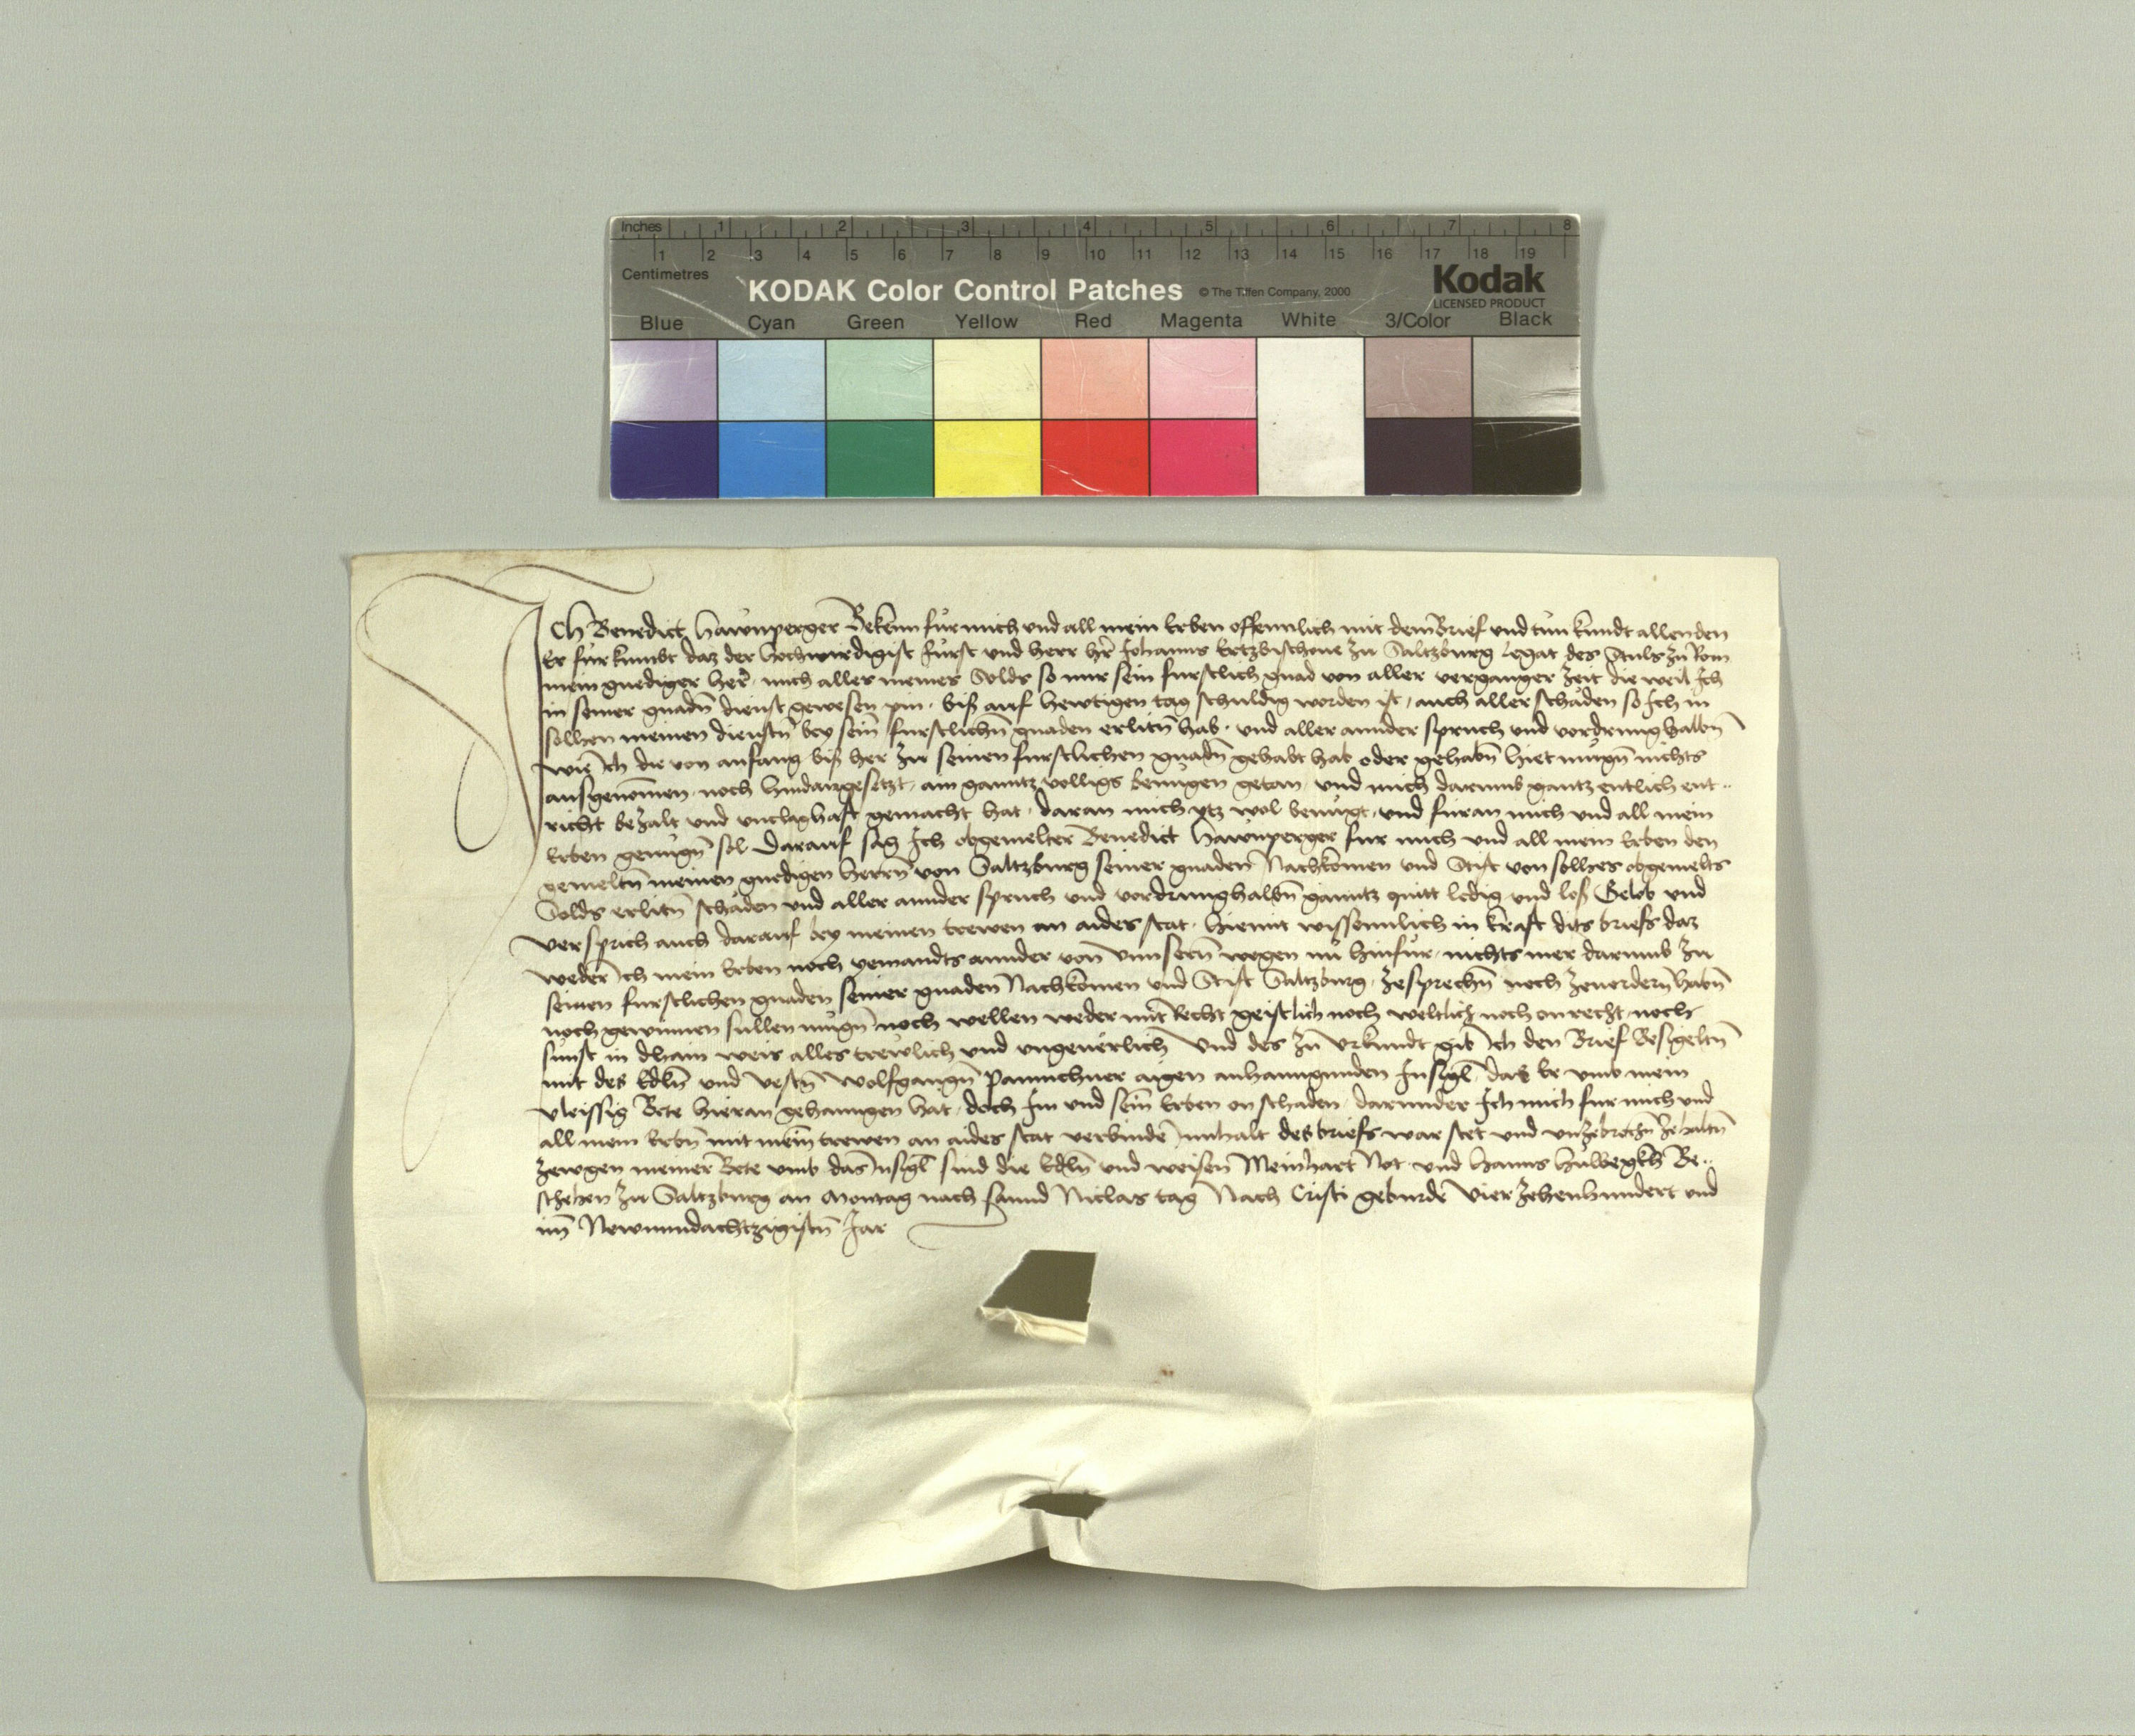 Inches 1 2 3 4 5 6 7 8
1 2 3 4 5 6 7 8 9 10 11 12 13 14 15 16 17 18 19
Centimetres
KODAK Color Control Patches © The Tiffen Company, 2000 Kodak
LICENSED PRODUCT
Blue Cyan Green Yellow Red Magenta White 3/Color Black
Ich Benedict Hawnperger Bekenn fur mich und all mein Erben offennlich mit dem Brief und tun kundt allen den
Er furkumbt daz der hochwirdigist furst und herr her Johanns Ertzbischoue zu Saltzburg Legat des Stuls zu Rom
mein gnediger her mich aller meines Solds so mir sein furstlich gnad von aller verganger zeit die weil Ich
in seiner gnadn dienst gewesen pin biß auf hewtigen tag schuldig worden ist auch aller schäden so Ich in
solhen meinen dienstn bey sein furstlichn gnaden erlitn hab und aller annder spruch und vordrung halbn
wie Ich die von anfang biß her zu seinen furstlichen gnadn gehabt hab oder gehabn hiet mugn nichts
ausgenomen noch hindangesetzt ain ganntz volligs benugen getan und mich darumb gantz entlich ent..
richt bezalt und unclaghaft gemacht hat daran mich ytz wol benugt und furan mich und all mein
Erben genugn sol Darauf sag Ich obgemelter Benedict Hawnperger fur mich und all mein Erben den
gemeltn meinen gnedigen herrn von Saltzburg seiner gnaden Nachkomen und Stift von solhes obgemelts
Solds erlitn schäden und aller annder spruch und vordrung halbn ganntz quitt ledig und loß Gelob und
versprich auch darauf bey meinen trewen an aides stat hiemit wissenntlich in kraft dits briefs daz
weder Ich mein Erben noch yemandts annder von unnsern wegen nu hinfur nichts mer darumb zu
seinen furstlichen gnaden seiner gnaden Nachkomen und Stift Saltzburg zesprechn noch zeuordern habn
noch gewinnen sullen mugn noch wellen weder mit Recht geistlich noch weltlich noch on recht noch
sunst in dhain weis alles trewlich und ungeuerlich Und des zu Urkundt gib Ich den Brief Besigeltn
mit des Edln und Vestn Wolfgangn Pannichner aigen anhanngunden Insigl das Er umb mein
vleissig Bete hieran gehanngen hat doch Im und sein Erben on schaden darunder Ich mich fur mich und
all mein Erbn mit mein trewen an aides stat verbinde innhalt des briefs war stet und unzebrochn zehaltn
zewgen meiner Bete umb das Insigl sind die Edln und weisen Meinhart Not und Hanns Be..
schehen zu Saltzburg an Montag nach sannd Niclas tag Nach Cristi geburde Vierzehenhundert und
im Newnundachtzigistn Jar